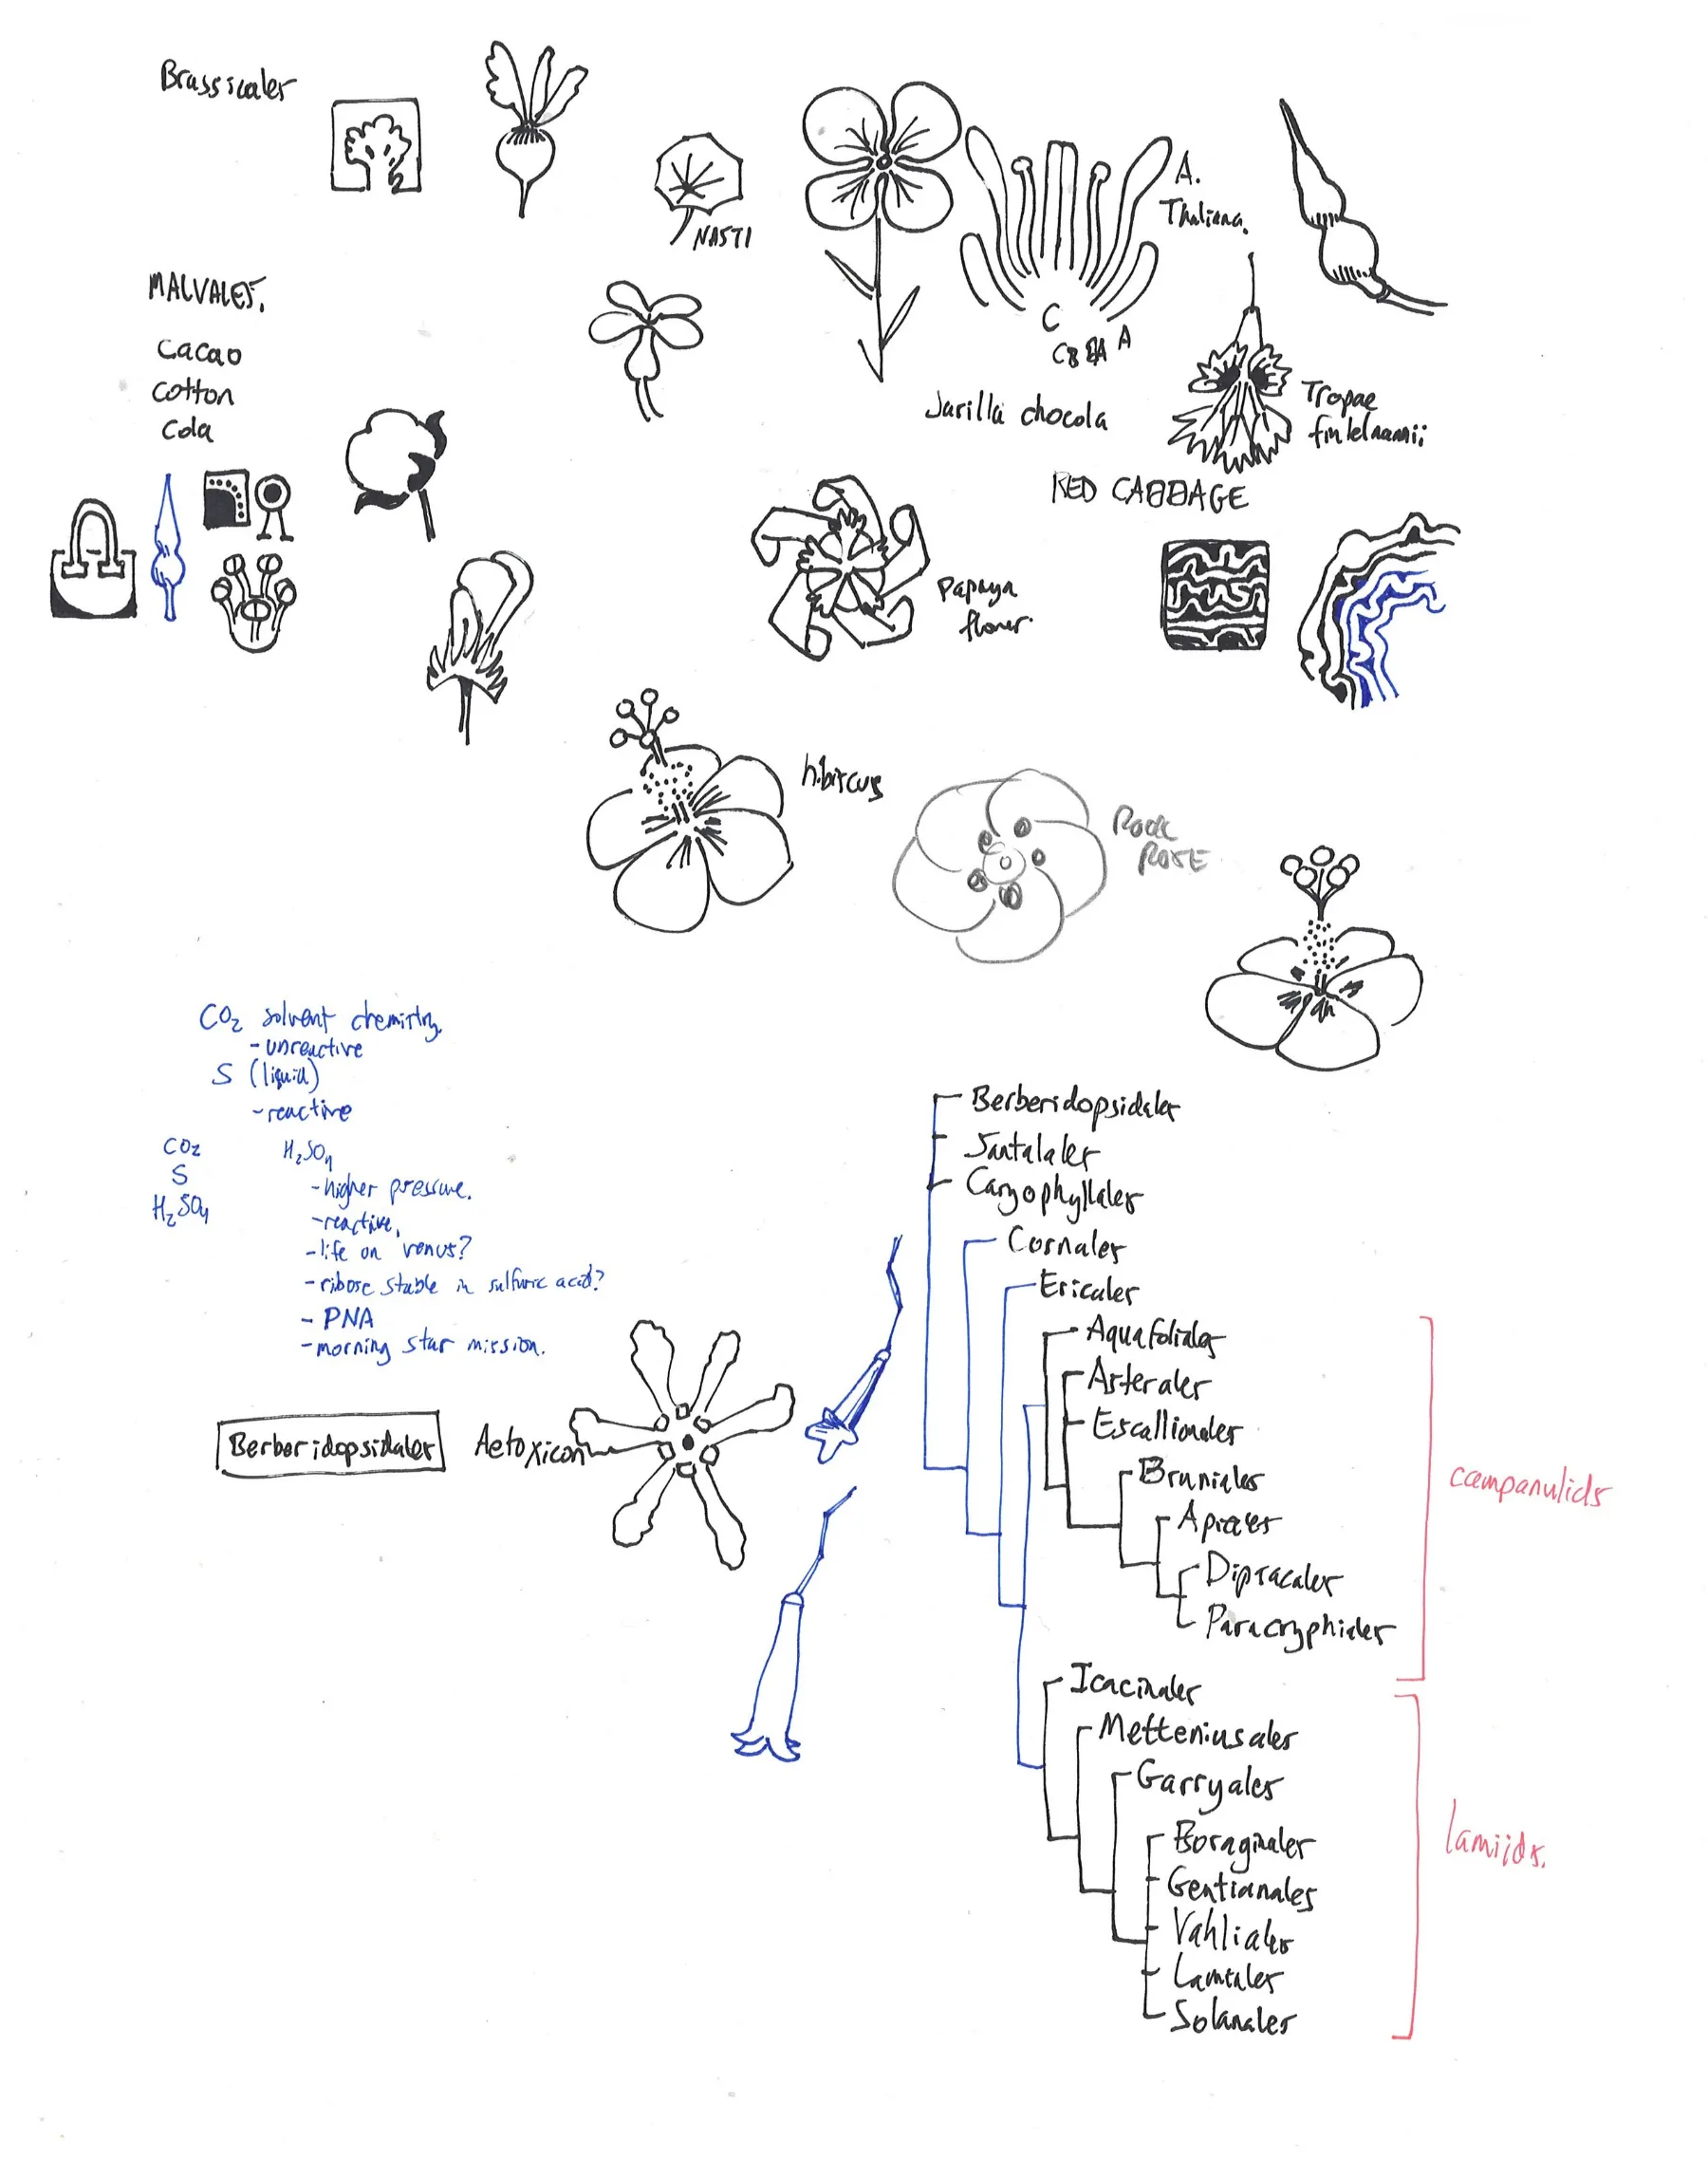 Brassicales
NASTI
A.
Thaliana.
C
A
MALVALES.
Cacao
Cotton
Cola
Jarilla chocola
Tropae
finkelnamii
RED CABBAGE
Papaya
flower.
hibiscus
ROCK
ROSE
CO2 solvent chemistry
- unreactive
S (liquid)
- reactive
CO2
S
H2SO4
H2SO4
- higher pressure.
- reactive,
- life on venus?
- ribose stable in sulfuric acid?
- PNA
- morning star mission.
Berberidopsidales
Aetoxicon
Berberidopsidales
Santalales
Caryophyllales
Cornales
Ericales
Aquafoliales
Asterales
Escallionales
Bruniales
Apiales
Dipsacales
Paracryphiales
campanulids
Icacinales
Metteniusales
Garryales
Boraginales
Gentianales
Vahliales
Lamiales
Solanales
lamiids.